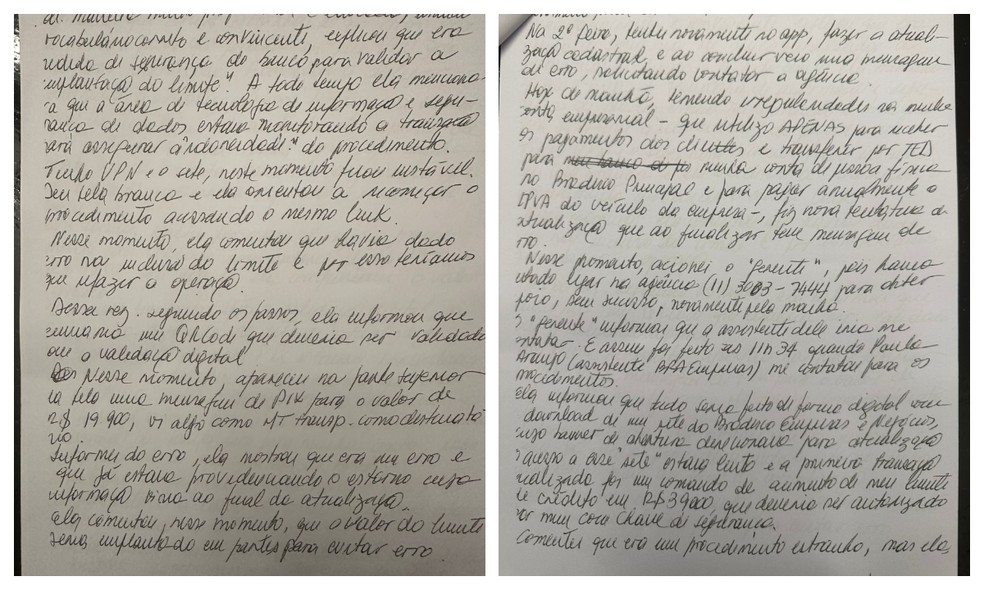 de maneira muito
vocabulário correto e convincente, explicou que era
medida de segurança do banco para validar a
"implantação do limite". A todo tempo ela menciona-
va que a área de tecnologia de informação e segu-
rança de dados estava monitorando a transação
para assegurar a "idoneidade" do procedimento.
Tenho VPN e o site, neste momento ficou instável.
Deu tela branca e ela orientou a recomeçar o
procedimento acessando o mesmo link.
Nesse momento, ela comentou que havia dado
erro na inclusão do limite e por isso teríamos
que refazer a operação.
Dessa vez, seguindo os passos, ela informou que
enviaria um QRCode que deveria ser validado
a validação digital
Nesse momento, apareceu na parte superior
da tela uma mensagem de PIX para o valor de
R$ 19.900, vi algo como MT transp. como destinatá
rio.
Informei do erro, ela mostrou que era um erro e
que já estava providenciando o estorno cuja
informação viria ao final da atualização.
Ela comentou, nesse momento, que o valor do limite
seria implantado em partes para evitar erro.
Na 2ª feira, tentei novamente no app, fazer a atuali-
zação cadastral e ao concluir veio uma mensagem
de erro, solicitando contatar a agência.
Hoje de manhã, temendo irregularidades na minha
conta empresarial - que utilizo APENAS para receber
os pagamentos dos clientes e transferir por TED
para minha conta de pessoa física
no Bradesco Principal e para pagar anualmente o
IPVA do veículo da empresa -, fiz nova tentativa de
atualização que ao finalizar tem mensagem de
erro.
Nesse momento, acionei o "gerente", pois havia
tentado ligar na agência (11) 3083-7444 para obter
apoio, sem sucesso, novamente pela manhã.
O "gerente" informou que a assistente dele iria me
contatar. E assim foi feito às 11h34 quando Paula
Araujo (assistente BRA Empresas) me contatou para os
procedimentos.
Ela informou que tudo seria feito de forma digital com
download de um site do Bradesco Empresas e Negócios,
cujo banner de abertura direcionava para atualização
O acesso a esse "site" estava lento e a primeira transação
realizada foi um comando de aumento de meu limite
de crédito em R$ 39.900, que deveria ser autorizado
por mim com chave de segurança.
Comentei que era um procedimento estranho, mas ela,